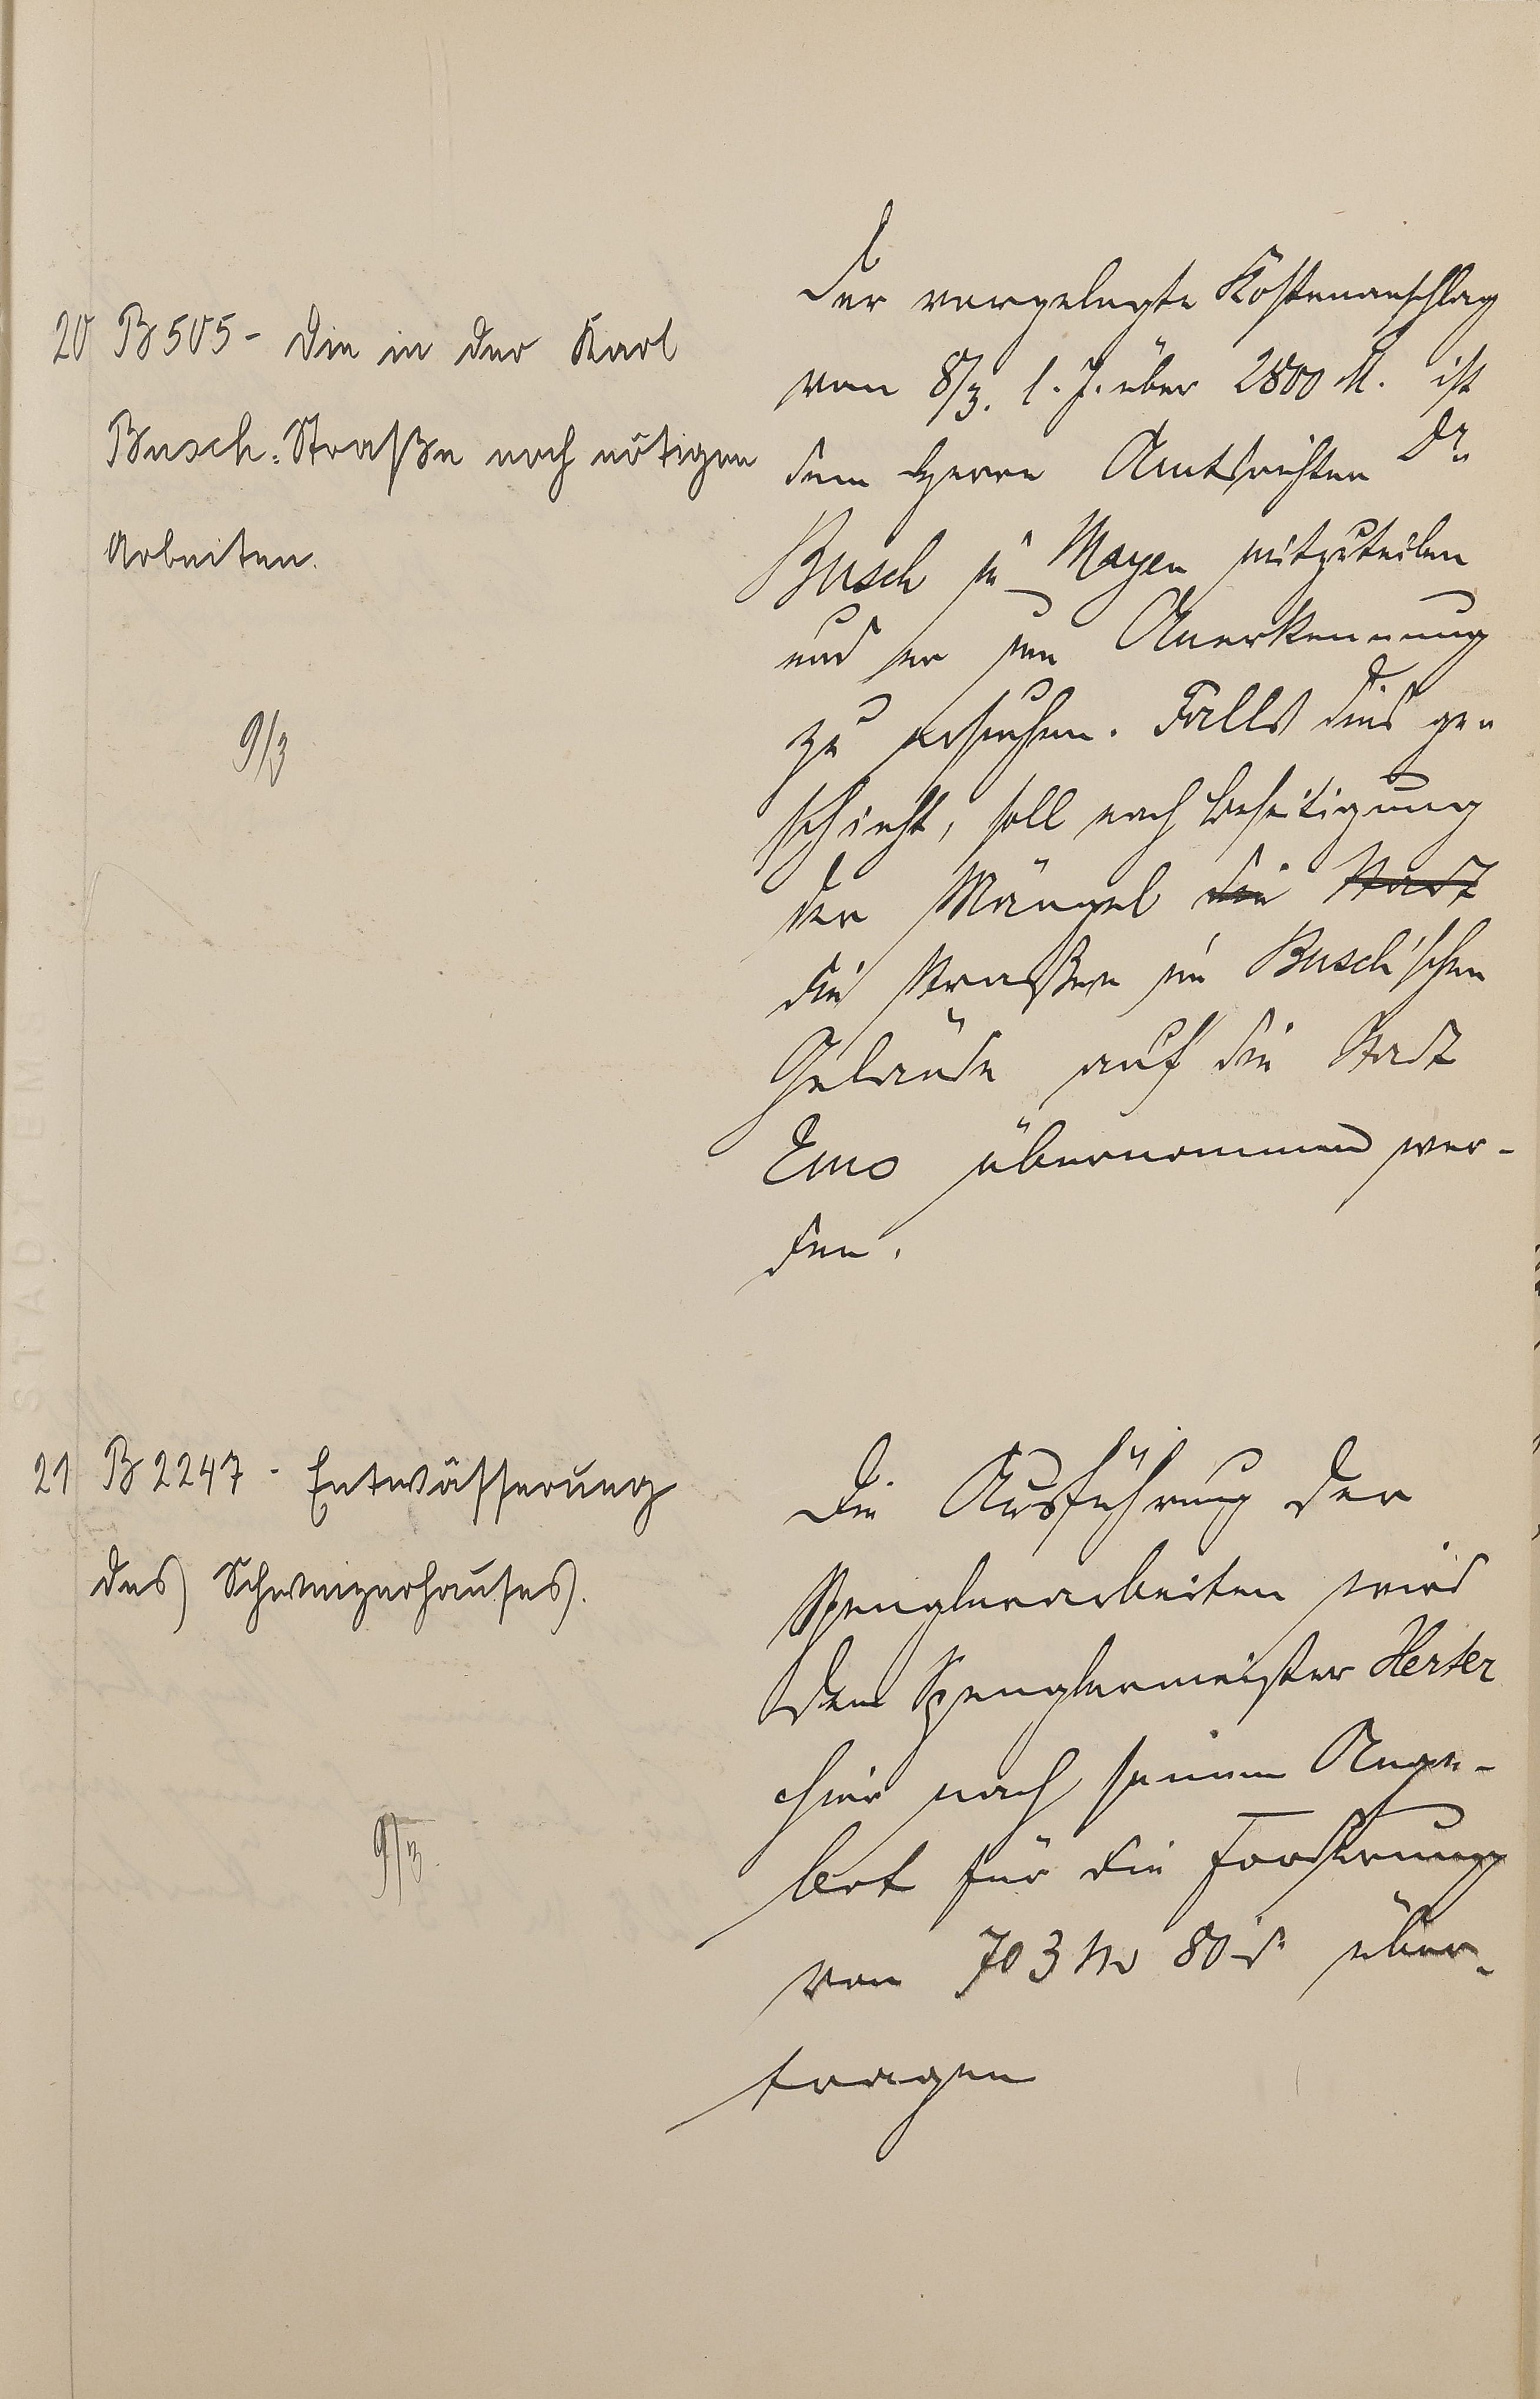 20 B 505 - Die in der Karl
Busch-Straße noch nötigen
Arbeiten.
9/3
Der vorgelegte Kostenanschlag
vom 8/3. l. J. über 2800 M. ist
dem Herrn Amtsrichter Dr.
Busch in Mayen mitzuteilen
und er um Anerkennung
zu ersuchen. Falls dies ge-
schieht, soll nach Beseitigung
der Mängel die Stadt
die Straßen im Busch'schen
Gelände auf die Stadt
Ems übernommen wer-
den.
21 B 2247 - Entwässerung
des Schweizerhauses.
9/3.
Die Ausführung der
Spenglerarbeiten wird
dem Spenglermeister Herter
hier nach seinem Ange-
bot für die Forderung
von 703 M 80 d über-
tragen
STADT EMS